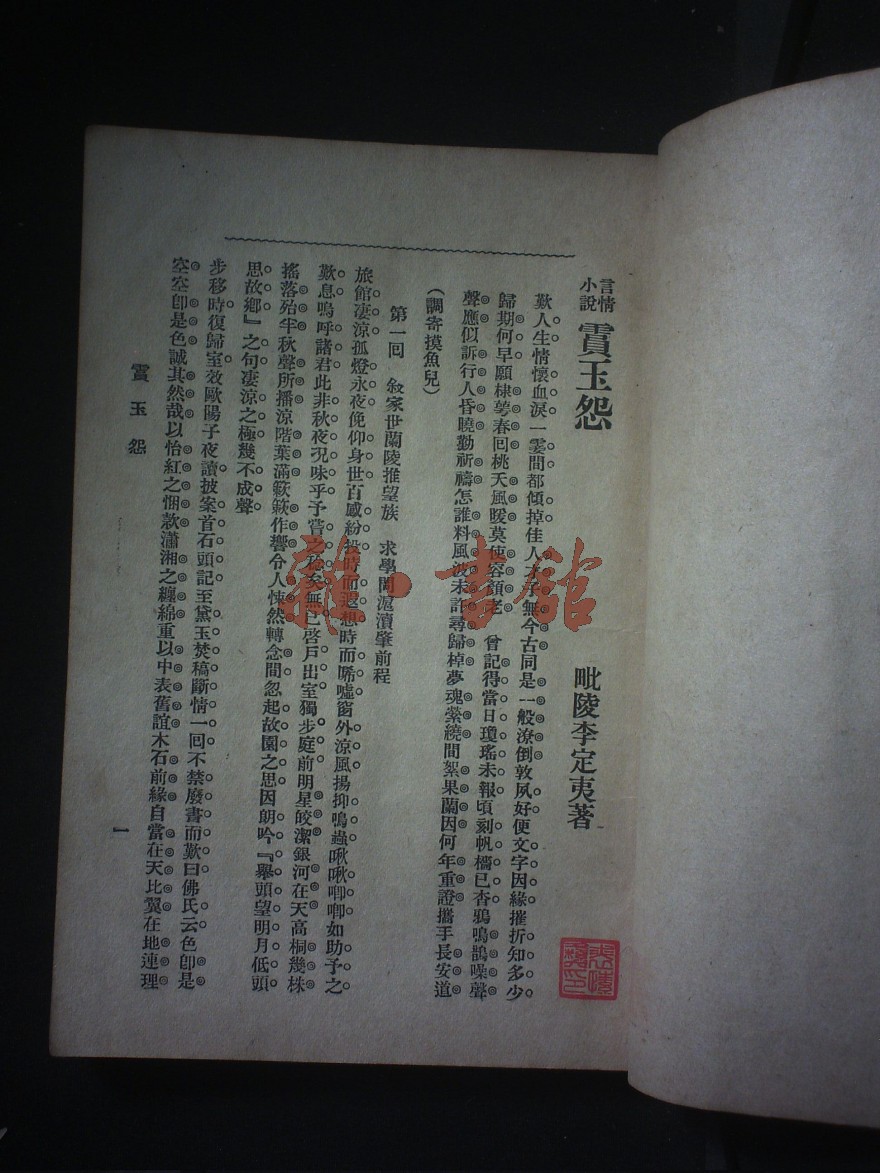 言情
小說
霣玉怨
毗陵李定夷著
歎人生情懷血淚一霎間都傾掉佳人才子無今古同是一般潦倒敦夙好便文字因緣摧折知多少
歸期何早願棣萼春囘桃夭風暖莫使容顏老　曾記得當日瓊瑤未報頃刻帆檣已杳鴉鳴鵲噪聲
聲應似訴行人昏曉勤祈禱怎誰料風波未許尋歸棹夢魂縈繞間絮果蘭因何年重證攜手長安道
（調寄摸魚兒）
第一囘　敍家世蘭陵推望族　求學問滬濱肇前程
旅館淒涼孤燈永夜俛仰身世百感紛投時而遐想時而唏噓窗外涼風揚抑鳴蟲啾啾唧唧如助予之
歎息嗚呼諸君此非秋夜况味乎予嘗之稔矣無已啓戶出室獨步庭前明星皎潔銀河在天高桐幾株
搖落殆半秋聲所播涼階葉滿簌簌作響令人悚然轉念間忽起故園之思因朗吟『舉頭望明月低頭
思故鄉』之句淒涼之極幾不成聲
步移時復歸室效歐陽子夜讀披案首石頭記至黛玉焚稿斷情一囘不禁廢書而歎曰佛氏云色卽是
空空卽是色誠其然哉以怡紅之悃款瀟湘之纏綿重以中表舊誼木石前緣自當在天比翼在地連理
霣玉怨
一